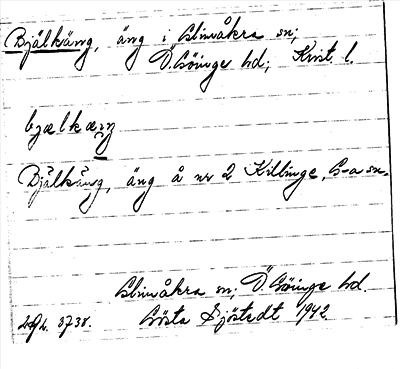 Bjälkäng, äng i Glimåkra sn;
Ö. Göinge hd; Krist. l.
bjælkæŋ
Bjälkäng, äng å nr 2 Killinge, G-a sn.
Glimåkra sn; Ö. Göinge hd.
Gösta Sjöstedt 1942.